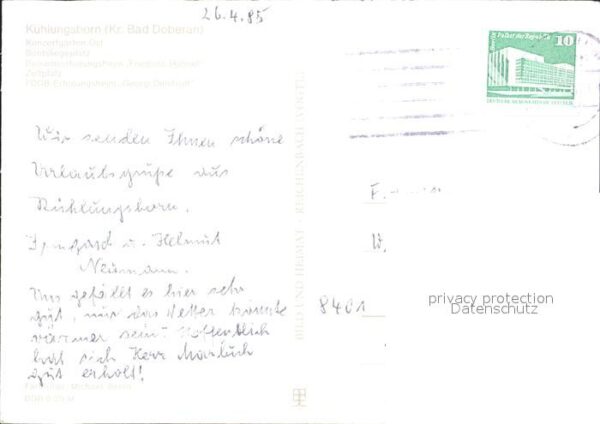 26.4.85
Kühlungsborn (Kr. Bad Doberan)
Konzertgarten Ost
Bootsliegeplatz
Zeltplatz
FDGB-Erholungsheim "Georgi Dimitroff"
Berlin, Palast der Republik
10
DEUTSCHE DEMOKRATISCHE REPUBLIK
Wir senden Ihnen schöne
Urlaubsgrüße aus
Kühlungsborn.
Irmgard u. Helmut
Neumann.
Uns gefällt es hier sehr
gut, nur das Wetter könnte
wärmer sein! Hoffentlich
hat sich Herr
gut erholt!
BILD UND HEIMAT · REICHENBACH (VOGTL)
8401
privacy protection
Datenschutz